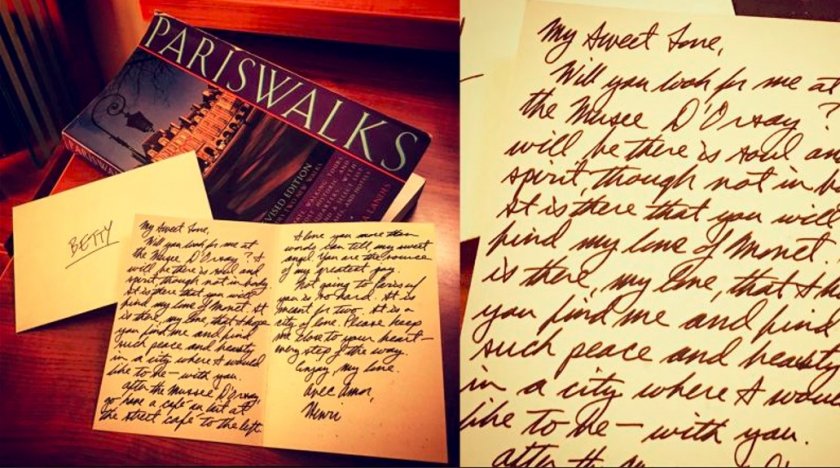 PARISWALKS
REVISED EDITION
LANDES
BETTY
My Sweet Love,
Will you look for me at
the Musee D'Orsay? I
will be there is soul and
spirit, though not in body.
It is there that you will
find my love of Monet. It
is there, my love, that I hope
you find me and find
such peace and beauty
in a city where I would
like to be — with you.
After the Musee D'Orsay,
go have a café au lait at
the street café to the left.
I love you more than
words can tell my sweet
angel. You are the source
of my greatest joy.
Not going to Paris w/
you is so hard. It is
meant for two. It is a
city of love. Please keep
me close to your heart —
every step of the way.
Enjoy, my love.
Avec Amor,
Henri
My Sweet Love,
Will you look for me at
the Musee D'Orsay?
will be there is soul an
spirit, though not in b
It is there that you will
find my love of Monet.
is there, my love, that I h
you find me and find
such peace and beauty
in a city where I woul
like to be — with you.
After the